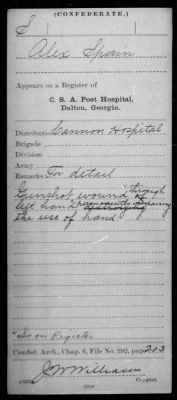 (CONFEDERATE.)
S
Alex Spain
Appears on a Register of
C. S. A. Post Hospital,
Dalton, Georgia.
Distribution: Cannon Hospital
Brigade
Division
Army
Remarks: For detail
Gunshot wound through
left hand permanently impairing
the use of hand.
*So on Register
Confed. Arch., Chap. 6, File No. 292, page 203
J W Williams
Copyist.